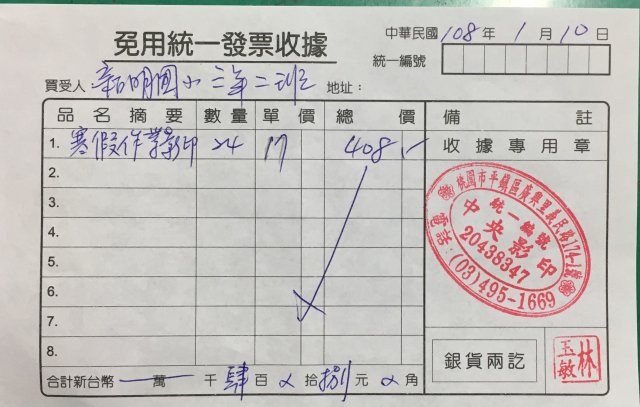 免用統一發票收據
中華民國 108 年 1 月 10 日
統一編號
買受人 新明國小 三年二班 地址：
品名摘要 數量 單價 總價 備註
1. 寒假作業影印 24 17 408
收據專用章
2.
3.
4.
5.
6.
7.
8.
桃園市平鎮區廣興里義民路174-1號
統一編號
中央影印
20438347
電話：(03)495-1669
銀貨兩訖
林玉敏
合計新台幣 萬 千 肆 百 拾 捌 元 角